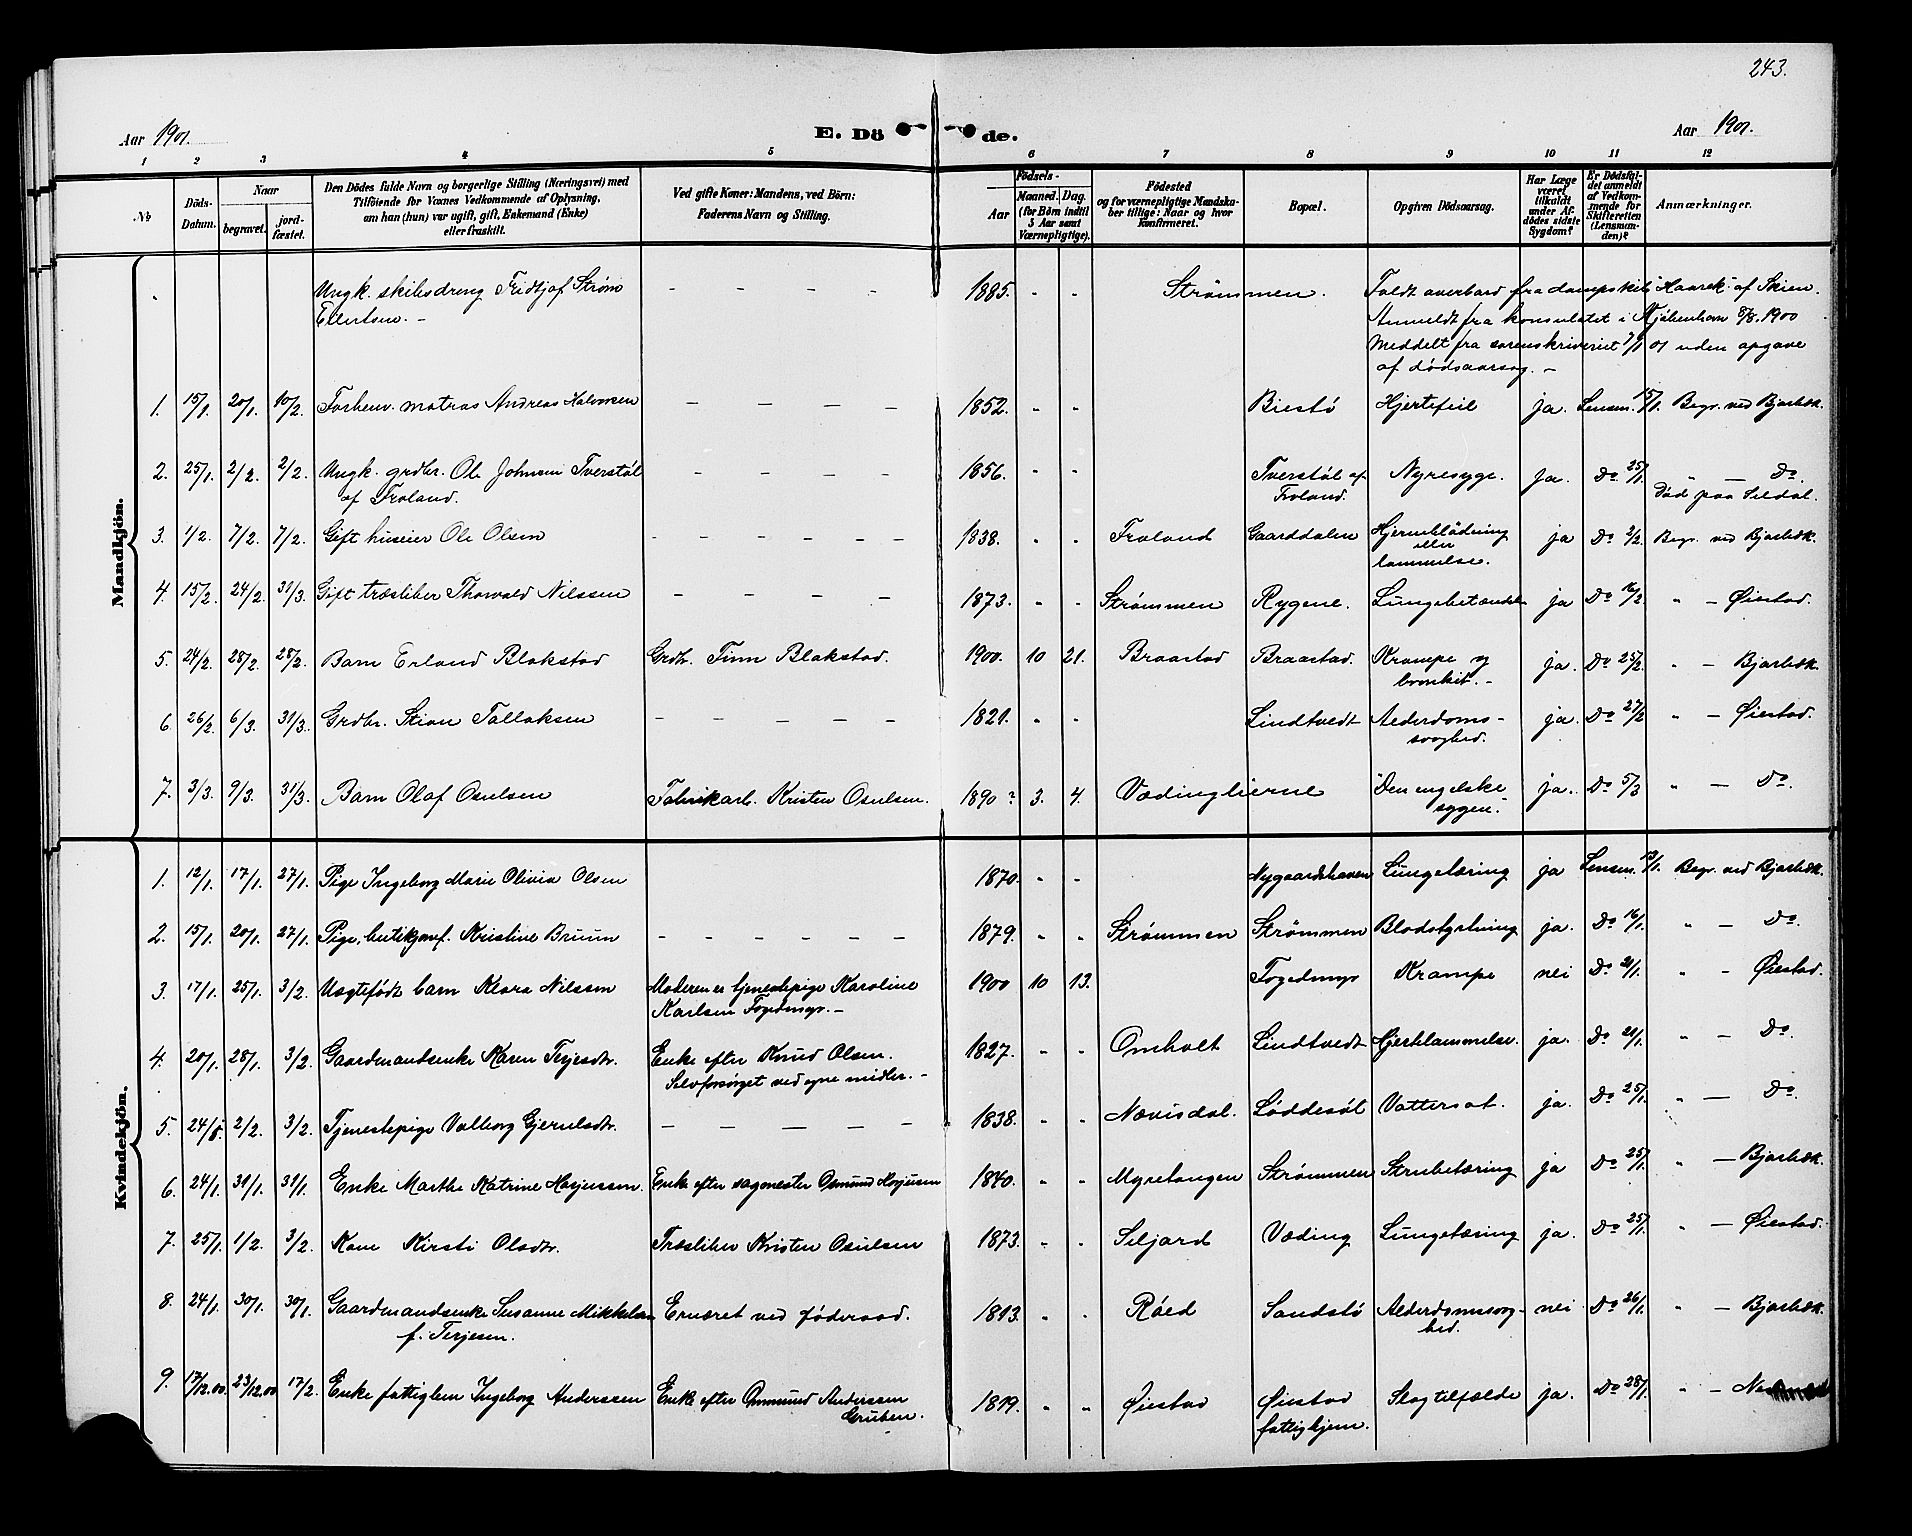 243.
Aar 1901. E. Dö de. Aar 1901.
1 2 3 4 5 6 7 8 9 10 11 12
No
Döds-Datum.
Naar
begravet.
jord-fæstet.
Den Dödes fulde Navn og borgerlige Stilling (Næringsvei) med
Tilföiende for Voxnes Vedkommende af Oplysning,
om han (hun) var ugift, gift, Enkemand (Enke)
eller fraskilt.
Ved gifte Koner: Mandens, ved Börn:
Faderens Navn og Stilling.
Födsels-
Aar
Maaned. Dag.
(for Börn indtil
5 Aar samt
Værnepligtige).
Födested
og for værnepligtige Mandska-
ber tillige: Naar og hvor
konfirmeret.
Bopæl.
Opgiven Dödsaarsag.
Har Læge
været
tilkaldt
under Af-
dödes sidste
Sygdom?
Er Dödsfal-
det anmeldt
af Vedkom-
mende for
Skifteretten
(Lensman-
den)?
Anmærkninger.
Mandkjön.
Ungk. skibsdreng Fridtjof Strøm - - - - 1885. " " Strømmen. Faldt overbord fra dampskib "Haarek" af Skien.
Ellertsen. - Anmeldt fra konsulatet i Kjøbenhavn 8/8. 1900
Meddelt fra sorenskriveriet 7/1 01 uden opgave
af dødsaarsag. -
1. 15/1. 20/1. 10/2. Forhenv. matros Andreas Halvorsen - - - - 1852. " " Biestø Hjertefeil ja. Lensm. 15/1. Begr. ved Bjorbæk.
2. 25/1. 2/2. 2/2. Ungk. grdbr. Ole Johnsen Tverstøl - - - - 1856. " " Tverstøl af Nyresyge. ja. Do 25/1. " - Do
af Froland. Froland. Død paa Seldal.
3. 1/2. 7/2. 7/2. Gift huseier Ole Olsen - - - - - - 1838. " " Froland Gaarddalen Hjerneblødning ja Do 2/2. Begr. ved Bjorbæk.
eller
lammelse.
4. 15/2. 24/2. 31/3. Gift træsliber Thorvald Nilssen - - - - 1873. " " Strømmen Rygene. Lungebetændelse ja Do 16/2. " - Øiestad.
5. 24/2. 28/2. 28/2. Barn Erland Blakstad Grdbr. Finn Blakstad. 1900. 10 21. Braastad Braastad. Krampe og ja. Do 25/2. " - Bjorbæk.
bronkit. -
6. 26/2. 6/3. 31/3. Grdbr. Stian Tallaksen - - - - - 1821. " " Lindtvedt Alderdoms- ja. Do 27/2 " - Øiestad.
svaghed.
7. 3/3. 9/3. 31/3. Barn Olaf Osulsen Fabrikarb. Kristen Osulsen. 1890? 3. 4. Vædinglierne "Den engelske ja. Do 5/3 " - Do
sygen".
Kvindekjön.
1. 12/1. 17/1. 27/1. Pige Ingeborg Marie Olivia Olsen 1870. " " Nygaardshaven Lungetæring ja Lensm. 13/1. Begr. ved Bjorbæk.
2. 15/1. 20/1. 27/1. Pige, butikjomf. Kristine Bruun - - - - - - 1879. " " Strømmen Strømmen Blodstyrtning ja. Do 16/1. " - Do
3. 17/1. 25/1. 3/2. Uægtefødt barn Klara Nilssen Moderen er tjenestepige Karoline 1900 10 13. Fogedmyr Krampe nei Do 21/1. " - Øiestad.
Karlsen Fogedmyr. -
4. 20/1. 28/1. 3/2. Gaardmandsenke Karen Terjesdtr. Enke efter Knud Olsen. 1827. " " Omholt Lindtvedt Hjertelammelse. ja. Do 21/1. " - Do
Selvforsørget ved egne midler. -
5. 24/1. 2/2. 3/2. Tjenestepige Valborg Gjerulsdtr. - - - - - 1838. " " Nævisdal. Løddesøl Vattersot. ja. Do 25/1. " - Do
6. 24/1. 31/1. 31/1. Enke Marthe Katrine Mosjussen. Enke efter sagmester Osmund Mosjussen 1840. " " Myretangen Strømmen Strubetæring ja Do 25/1. " - Bjorbæk.
7. 25/1. 1/2. 3/2. Kone Kirsti Olsdtr. Træsliber Kristen Osulsen 1873. " " Seljord Væding Lungetæring ja. Do 25/1. " - Øiestad.
8. 24/1. 30/1. 30/1. Gaardmandsenke Susanne Mikkelsen Ernæret ved føderaad. 1813. " " Råed Sandstø Alderdomssvag- nei Do 26/1. " - Bjorbæk.
f. Terjesen. hed.
9. 17/12.00. 23/12.00 17/2. Enke fattiglem Ingeborg Anderssen Enke efter Ommund Anderssen 1819. " " Øiestad Øiestad Slagtilfælde ja. Do 28/1. " -
Gruben. fattighjem.